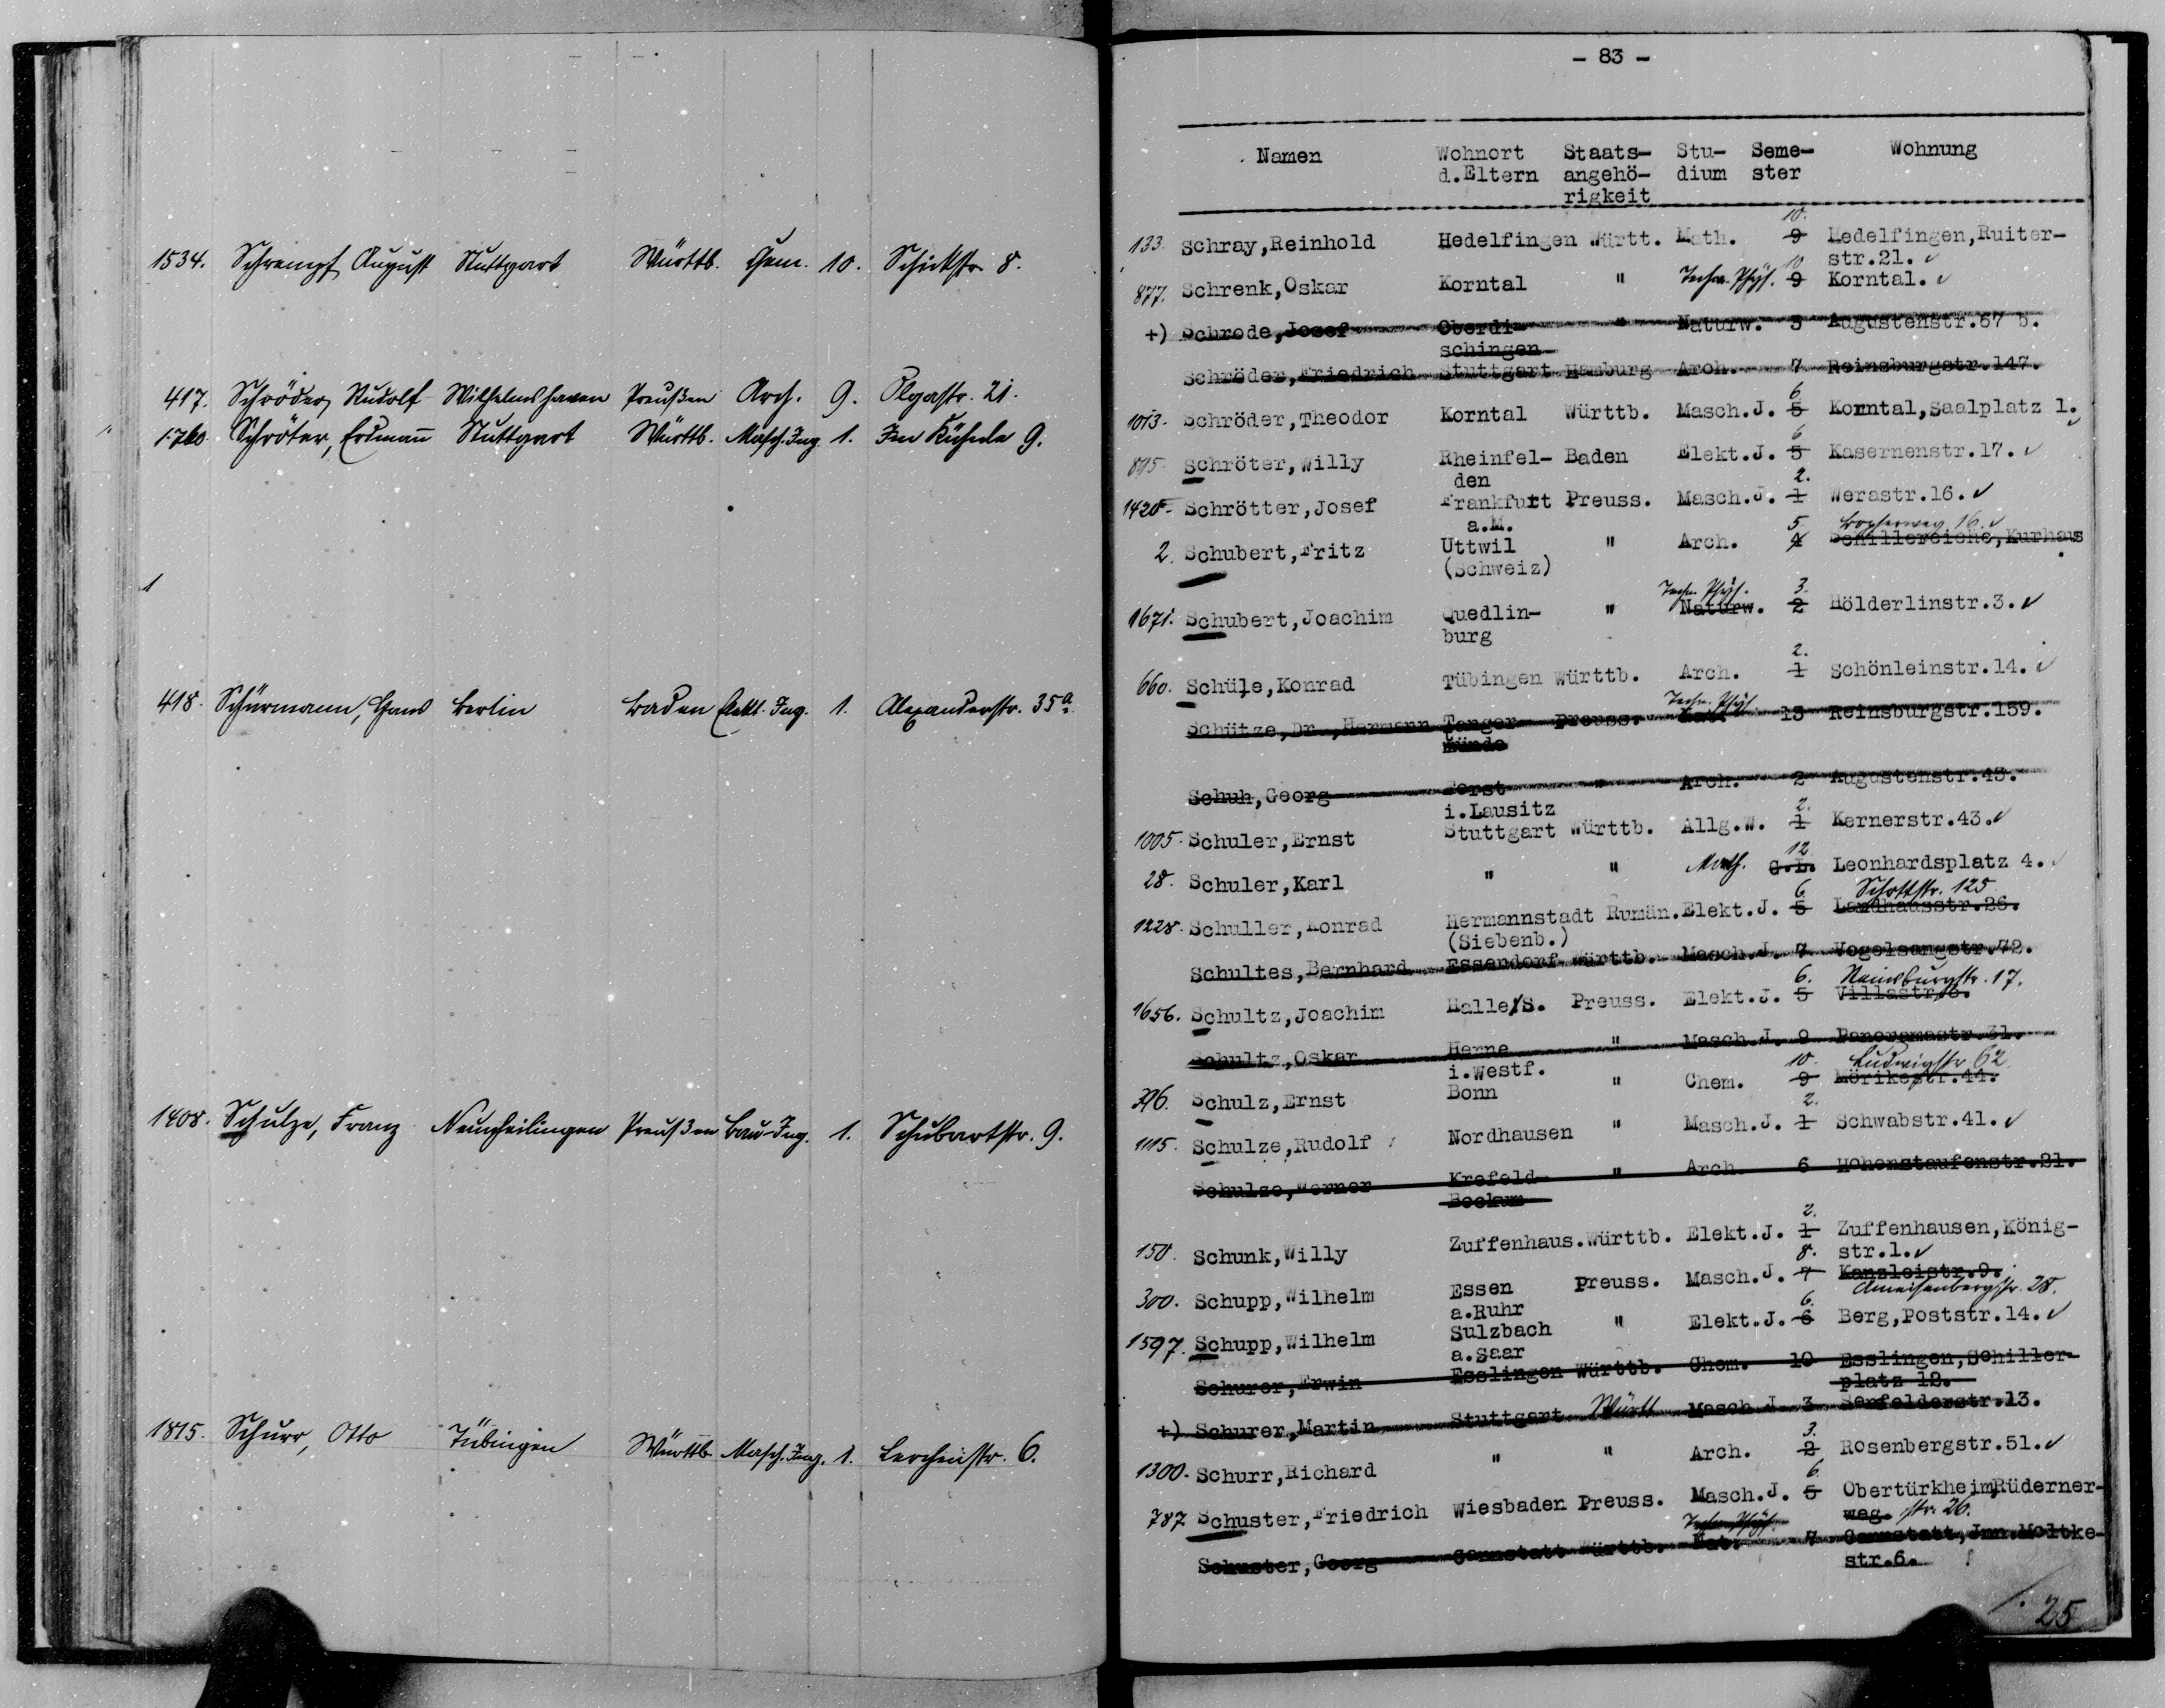 1534. Schrempf, August Stuttgart Württb. Chem. 10. Schickstr. 8.
417. Schröder, Rudolf Wilhelmshaven Preußen Arch. 9. Olgastr. 21.
1760. Schröter, Erdmann Stuttgart Württb. Masch. Ing. 1. Im Kühnle 9.
418. Schürmann, Hans Berlin Baden Elekt. Ing. 1. Alexanderstr. 35a.
1408. Schulze, Franz Neunheilingen Preußen Bau-Ing. 1. Schubartstr. 9.
1815. Schurr, Otto Tübingen Württb. Masch. Ing. 1. Lerchenstr. 6.
- 83 -
Namen Wohnort Staats- Stu- Seme- Wohnung
d.Eltern angehö- dium ster
rigkeit
10.
133. Schray,Reinhold Hedelfingen Württ. Math. 9 Hedelfingen,Ruiter-
10 str.21. ✓
877. Schrenk,Oskar Korntal " Techn. Phys. 9 Korntal. ✓
+) Schrode,Josef Oberdi- " Naturw. 3 Augustenstr.67 b.
schingen
Schröder,Friedrich Stuttgart Hamburg Arch. 7 Reinsburgstr.147.
6
1013. Schröder,Theodor Korntal Württb. Masch.J. 5 Korntal,Saalplatz 1. ✓
6
895. Schröter,Willy Rheinfel- Baden Elekt.J. 5 Kasernenstr.17. ✓
den 2.
1420. Schrötter,Josef Frankfurt Preuss. Masch.J. 1 Werastr.16. ✓
a.M. 5. Bopserweg 16. ✓
2. Schubert,Fritz Uttwil " Arch. 4 Schillereiche,Kurhaus
(Schweiz) .
Techn. Phys. 3.
1671. Schubert,Joachim Quedlin- " Naturw. 2 Hölderlinstr.3. ✓
burg
2.
660. Schüle,Konrad Tübingen Württb. Arch. 1 Schönleinstr.14. ✓
Techn. Phys.
Schütze,Dr.,Hermann Tanger Preuss. 13 Reinsburgstr.159.
münde
Schuh,Georg Forst " Arch. 2 Augustenstr.43.
i.Lausitz 2.
1005. Schuler,Ernst Stuttgart Württb. Allg.W. 1 Kernerstr.43. ✓
12
28. Schuler,Karl " " Math. G.L. Leonhardsplatz 4. ✓
6 Schottstr. 125
1228. Schuller,Konrad Hermannstadt Rumän. Elekt.J. 5 Landhausstr.26.
(Siebenb.)
Schultes,Bernhard Essendorf Württb. Masch.J. 7 Vogelsangstr.72.
6. Reinsburgstr. 17.
1656. Schultz,Joachim Halle/S. Preuss. Elekt.J. 5 Villastr.8.
Schultz,Oskar Herne " Masch.J. 9 Panoramastr.31.
i.Westf. 10. Ludwigstr. 62
396. Schulz,Ernst Bonn " Chem. 9 Mörikestr.44.
2.
1115. Schulze,Rudolf Nordhausen " Masch.J. 1 Schwabstr.41. ✓
Schulze,Werner Krefeld- " Arch. 6 Hohenstaufenstr.21.
Bockum
2.
150. Schunk,Willy Zuffenhaus. Württb. Elekt.J. 1 Zuffenhausen,König-
8. str.1. ✓
300. Schupp,Wilhelm Essen Preuss. Masch.J. 7 Kanzleistr.9.
a.Ruhr 6. Ameisenbergstr. 28.
1597. Schupp,Wilhelm Sulzbach " Elekt.J. 6 Berg,Poststr.14. ✓
a.Saar
Schurer,Erwin Esslingen Württb. Chem. 10 Esslingen,Schiller-
platz 12.
+) Schurer,Martin Stuttgart Württ Masch.J. 3 Senfelderstr.13.
3.
1300. Schurr,Richard " " Arch. 2 Rosenbergstr.51. ✓
6.
787 Schuster,Friedrich Wiesbaden Preuss. Masch.J. 5 Obertürkheim,Rüderner-
Techn. Phys. weg. str. 26.
Schuster,Georg Cannstatt Württb. Nat. 7 Cannstatt,Inn.Moltke-
str.6.
25